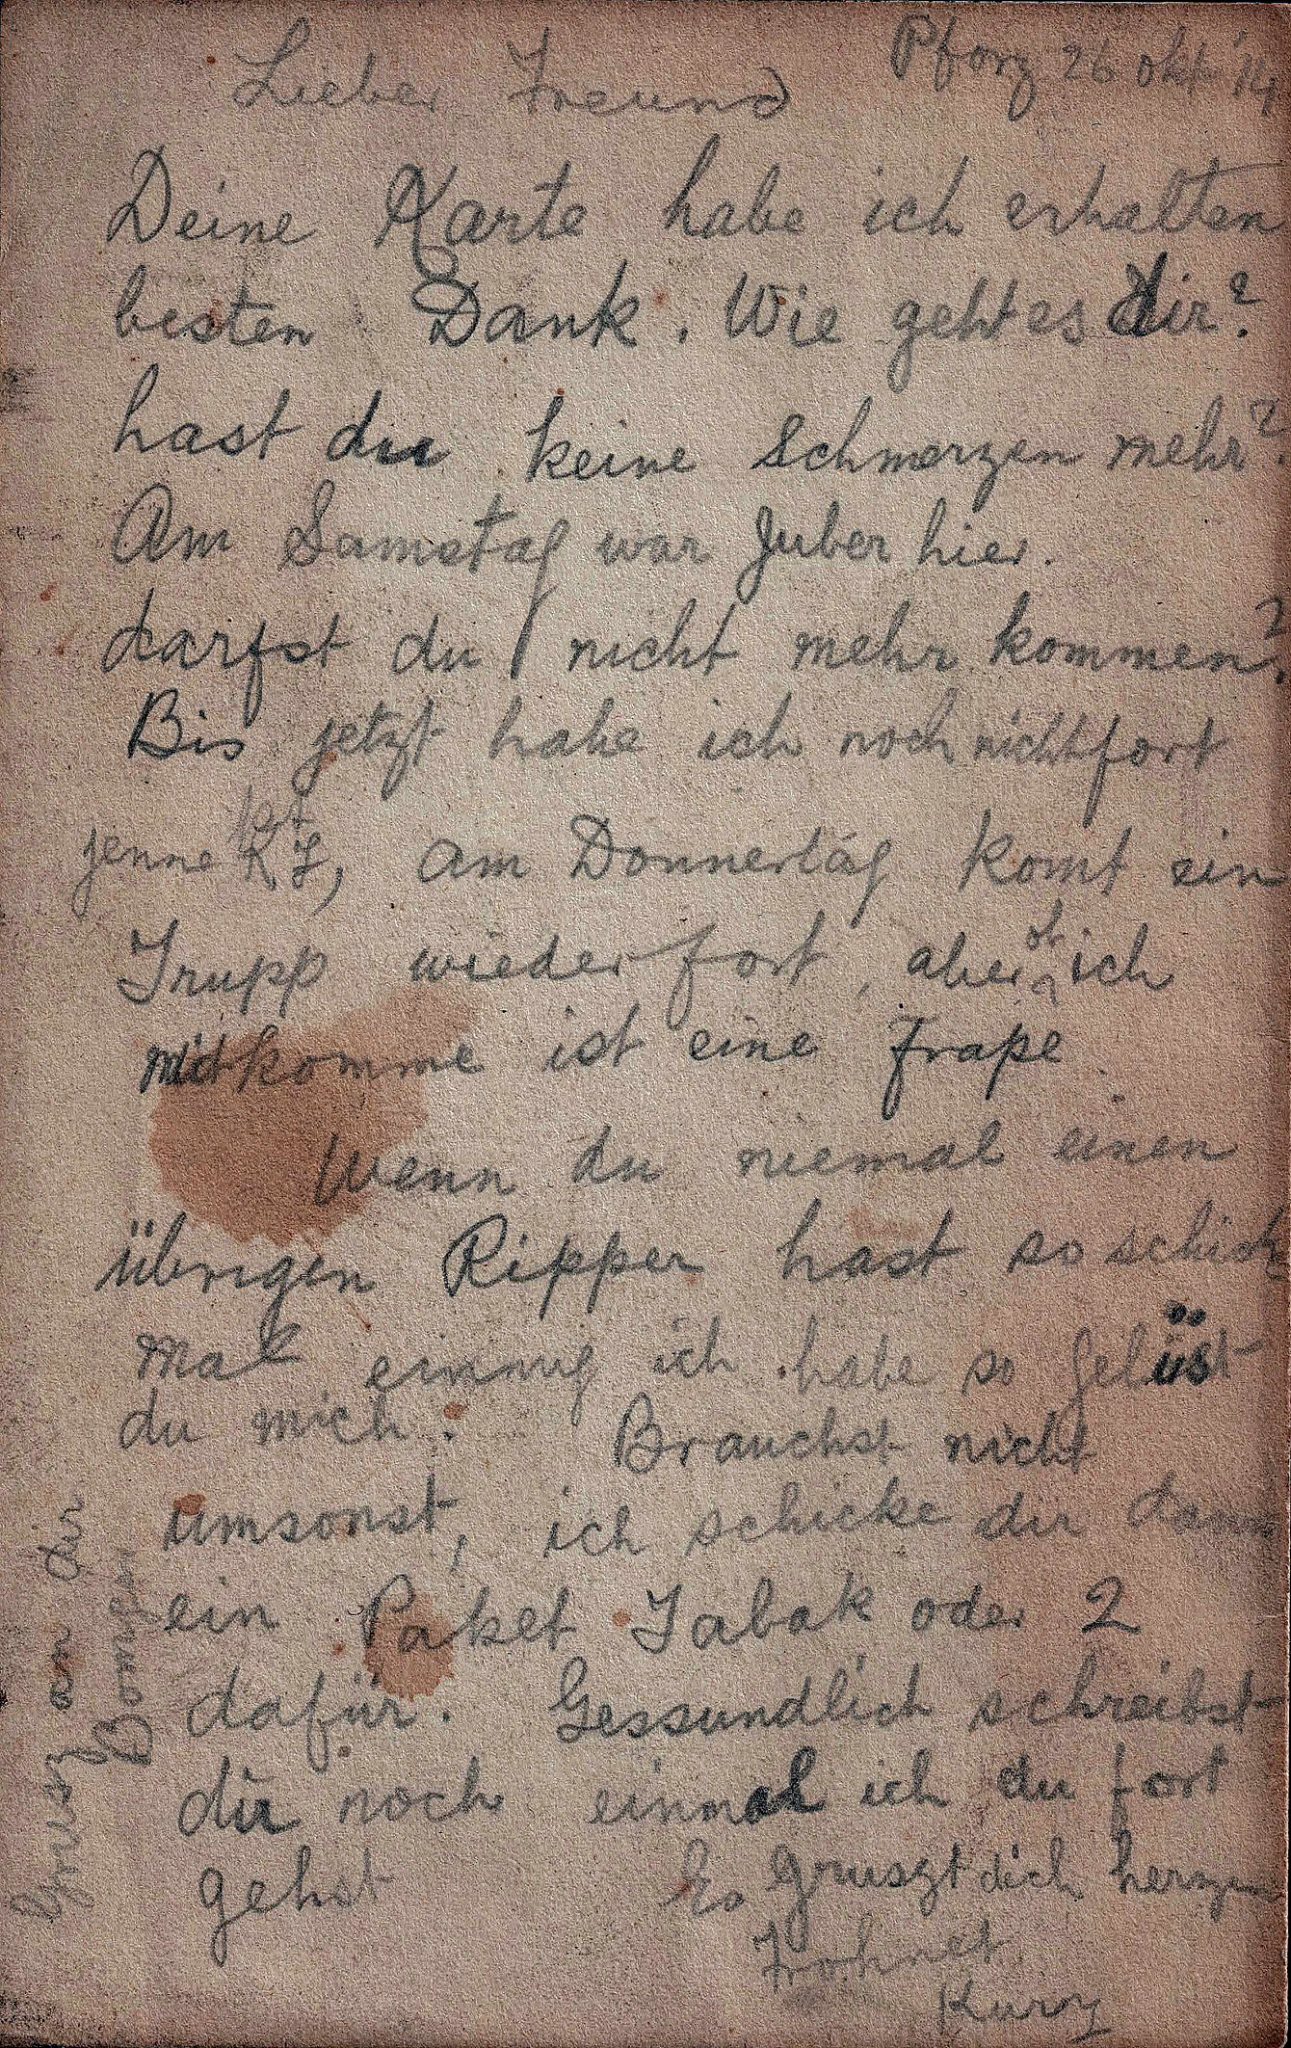 Pforz 26 okt 14
Lieber Freund
Deine Karte habe ich erhalten
besten Dank. Wie geht es dir?
hast du keine Schmerzen mehr?
Am Samstag war Juber hier.
darfst du nicht mehr kommen?
Bis jetzt habe ich noch nicht fort
jenne am Donnertag komt ein
Trupp wieder fort, aber ob ich
mitkomme ist eine Frage
Wenn du niemal einen
übrigen Ripper hast so schick
mal ich habe so gelüst
du mich. Brauchst nicht
umsonst, ich schicke dir dann
ein Paket Tabak oder 2
dafür. Gessundlich schreibst
du noch einmal ich du fort
gehst Es gruszt dich herzen
Kurz